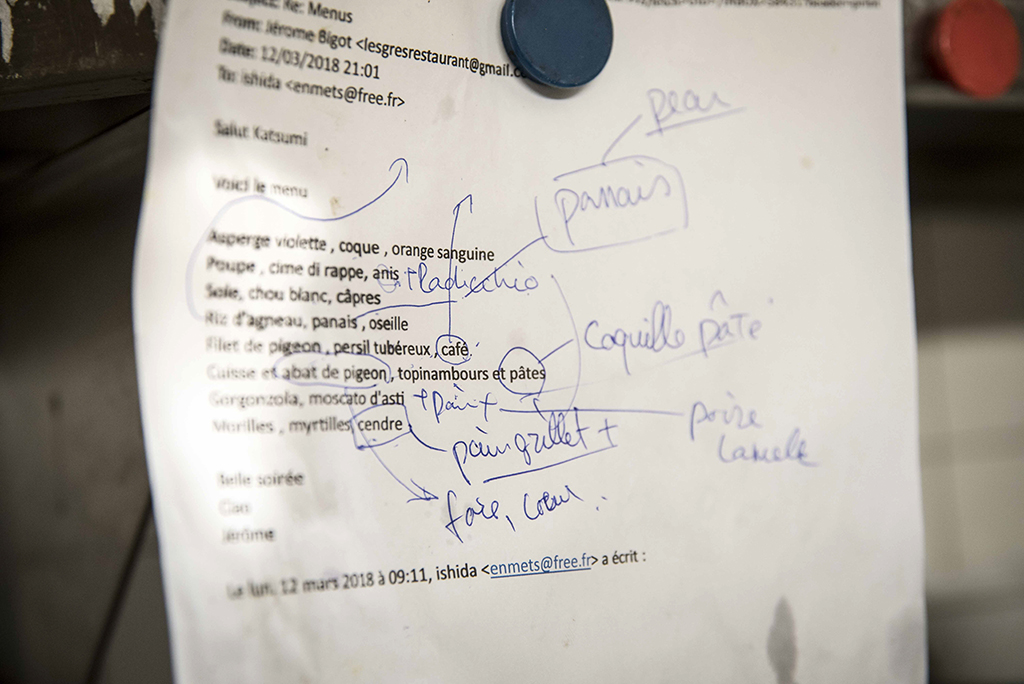 Re: Menus
From: Jérome Bigot <lesgresrestaurant@gmail.c
Date: 12/03/2018 21:01
To: ishida <enmets@free.fr>
peau
Salut Katsumi
panais
Voici le menu
Asperge violette , coque , orange sanguine
Poupe , cime di rappe, anis + Radicchio
Sole, chou blanc, câpres
Riz d'agneau, panais , oseille
Coquille pâte
Filet de pigeon , persil tubéreux , café.
Cuisse et abat de pigeon , topinambours et pâtes
Gorgonzola, moscato d'asti + pain +
poire
Morilles , myrtilles, cendre
pain grillet +
foie, coeur.
Belle soirée
Ciao
Jérôme
Le lun. 12 mars 2018 à 09:11, ishida <enmets@free.fr> a écrit :